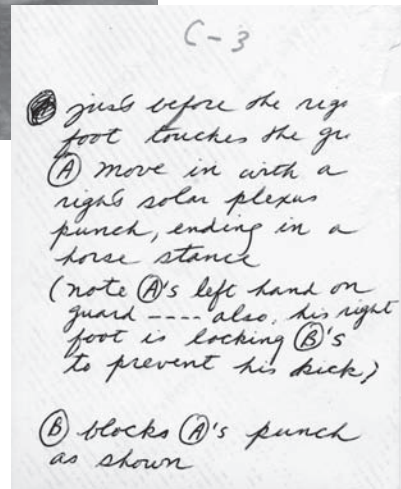 C-3
just before the
foot touches the
Ⓐ move in with a
right solar plexus
punch, ending in a
horse stance
(note Ⓐ's left hand on
guard ---- also, his right
foot is locking Ⓑ's
to prevent his kick)
Ⓑ blocks Ⓐ's punch
as shown